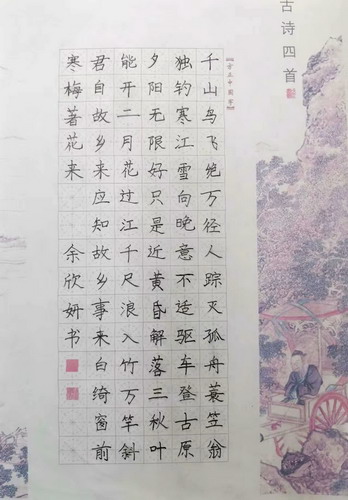 古诗四首
千山鸟飞绝万径人踪灭孤舟蓑笠翁
独钓寒江雪向晚意不适驱车登古原
夕阳无限好只是近黄昏解落三秋叶
能开二月花过江千尺浪入竹万竿斜
君自故乡来应知故乡事来白绮窗前
寒梅著花来 余欣妍书